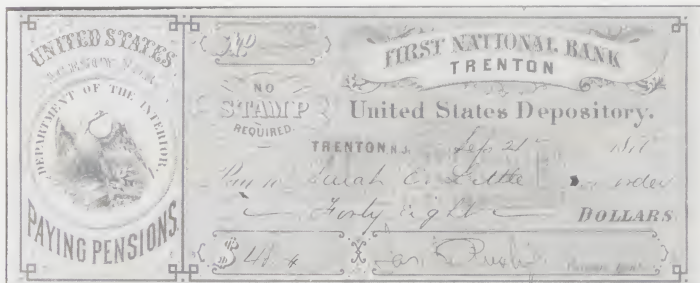 UNITED STATES
AGENCY FOR
DEPARTMENT OF THE INTERIOR
PAYING PENSIONS.
FIRST NATIONAL BANK
TRENTON
NO
STAMP
REQUIRED.
United States Depository.
TRENTON N.J. Sep 21
Pay to Sarah C. Little or order
Forty eight DOLLARS
$ 48